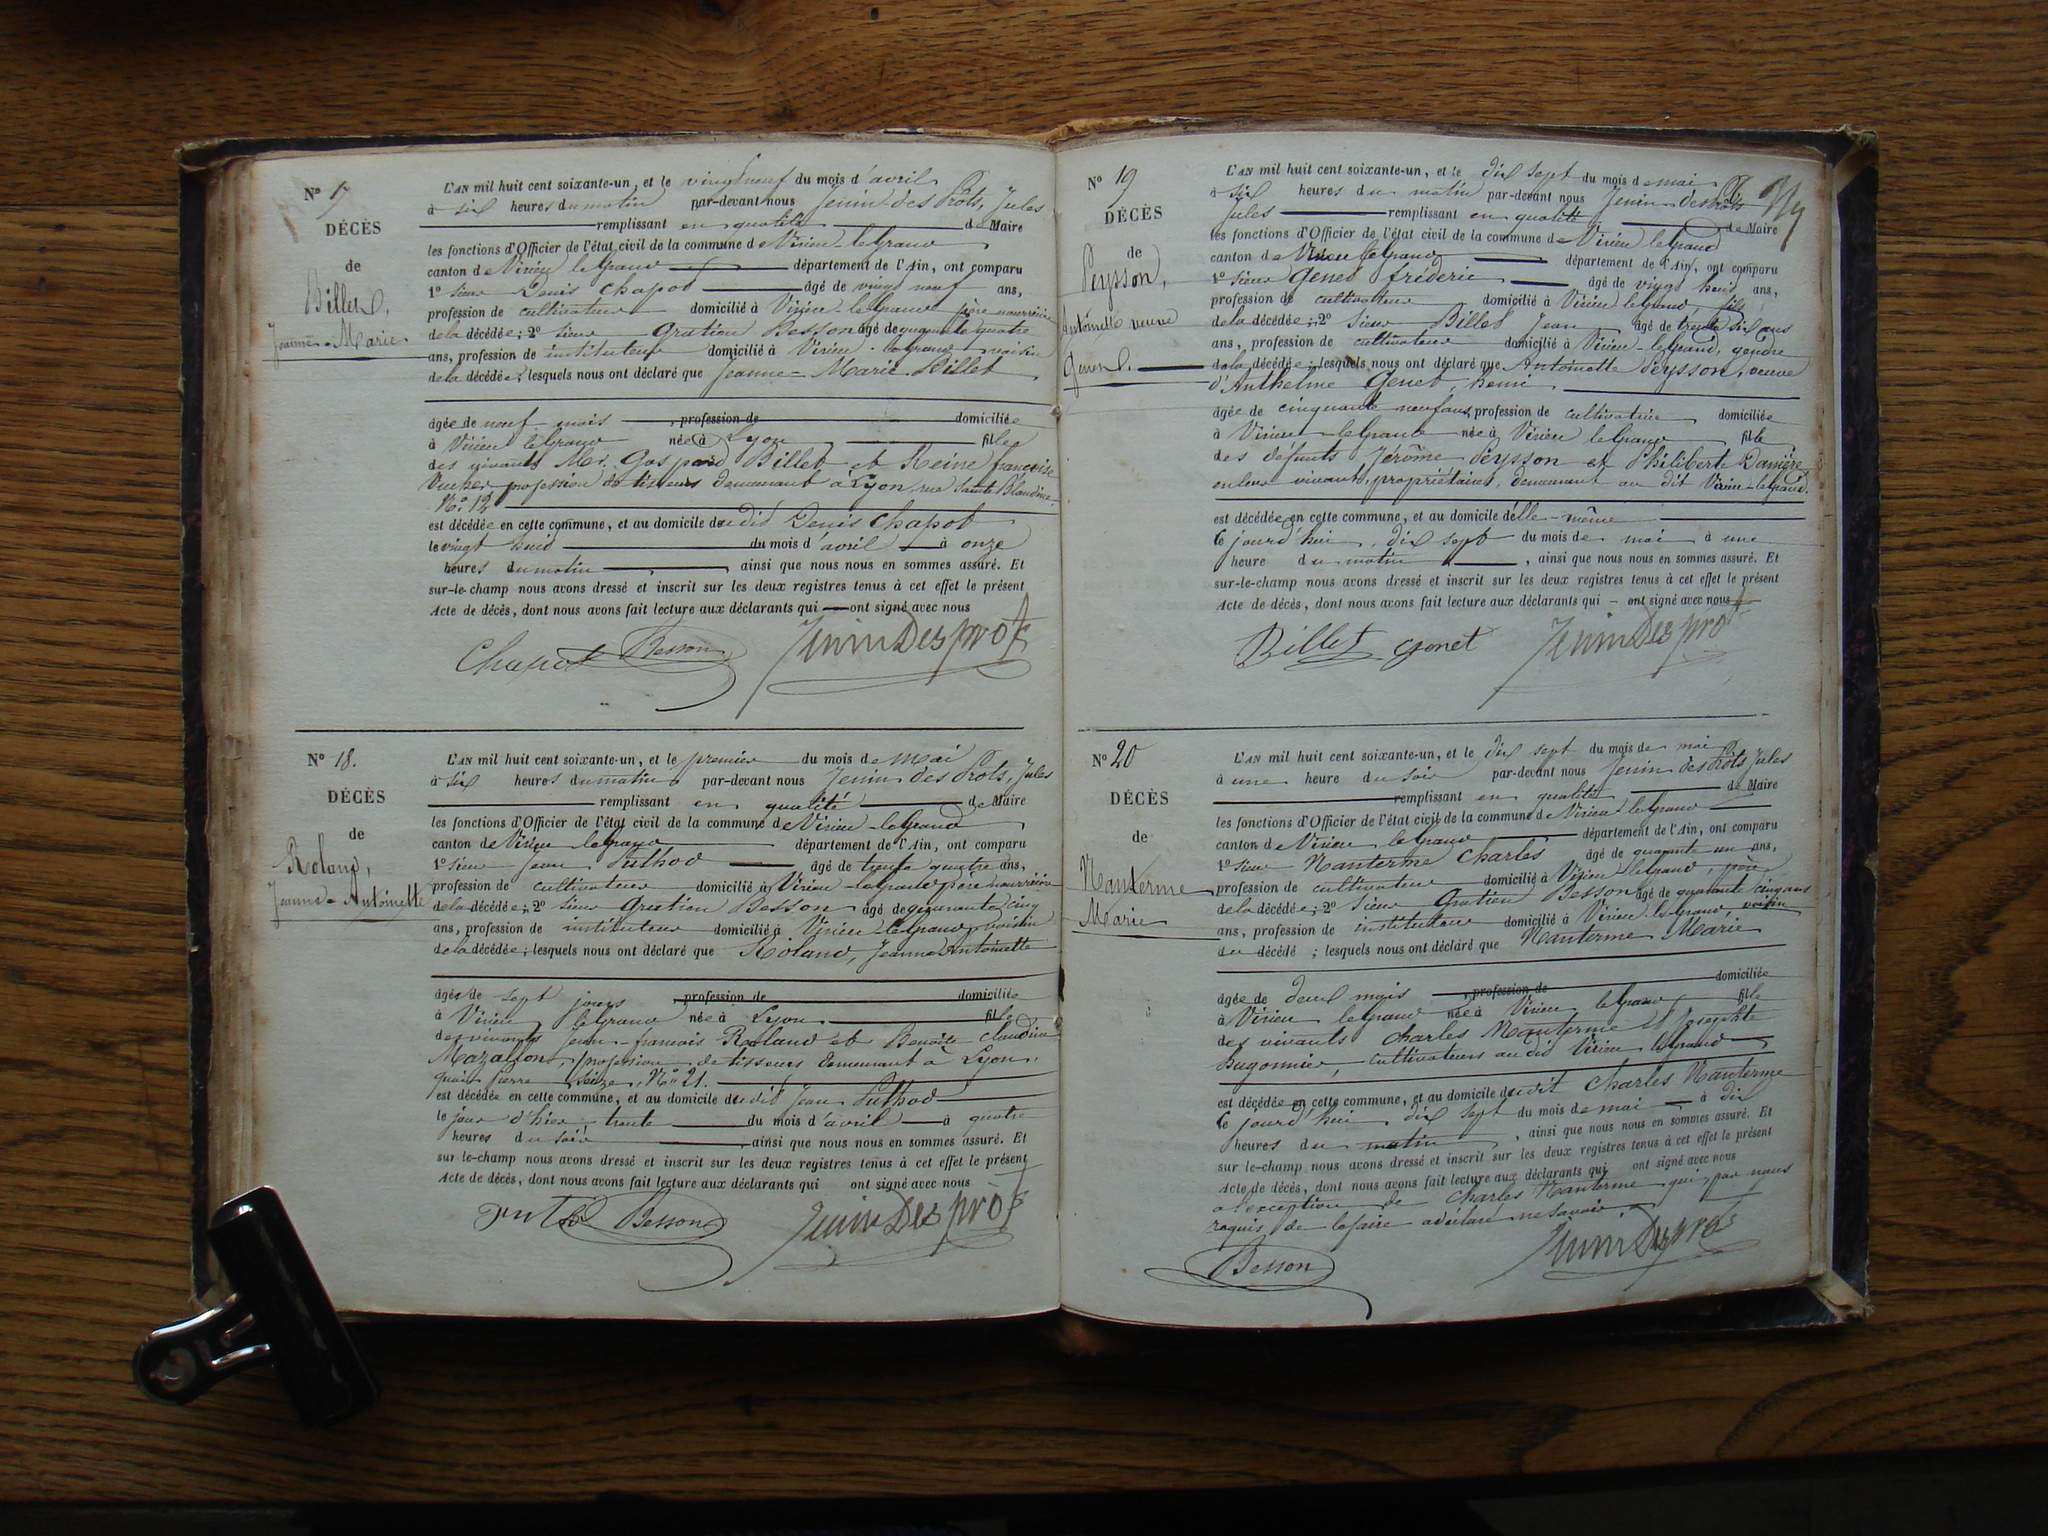 N° 17
DÉCÈS
de
Billet,
Jeanne-Marie
L'AN mil huit cent soixante-un, et le vingt neuf du mois d'avril
à six heures du matin par-devant nous Jenin-des Prots, Jules
remplissant en qualité de Maire
les fonctions d'Officier de l'état civil de la commune de Virieu-le-Grand
canton de Virieu le Grand département de l'Ain, ont comparu
1° sieur Denis Chapot âgé de vingt neuf ans,
profession de cultivateur domicilié à Virieu-le-Grand père nourricier
de la décédée; 2° sieur Gratien Besson âgé de quarante quatre
ans, profession de instituteur domicilié à Virieu-le-Grand voisin
de la décédée; lesquels nous ont déclaré que Jeanne-Marie Billet
âgée de neuf mois profession de domiciliée
à Virieu le Grand née à Lyon fille
des vivants Mr. Gaspard Billet et Reine françoise
profession de tisseurs demeurant à Lyon, rue Sainte Blandine
N°. 12
est décédée en cette commune, et au domicile dudit Denis Chapot
le vingt huit du mois d'avril à onze
heures du matin, ainsi que nous nous en sommes assuré. Et
sur-le-champ nous avons dressé et inscrit sur les deux registres tenus à cet effet le présent
Acte de décès, dont nous avons fait lecture aux déclarants qui ont signé avec nous
Chapot Besson JeninDesprots
N° 18.
DÉCÈS
de
Roland,
Jeanne-Antoinette
L'AN mil huit cent soixante-un, et le premier du mois de mai
à six heures du matin par-devant nous Jenin des Prots, Jules
remplissant en qualité de Maire
les fonctions d'Officier de l'état civil de la commune de Virieu-le-Grand
canton de Virieu le grand département de l'Ain, ont comparu
1° sieur Jean Puthod âgé de trente quatre ans,
profession de cultivateur domicilié à Virieu-le-Grand père nourricier
de la décédée; 2° sieur Gratien Besson âgé de quarante cinq
ans, profession de instituteur domicilié à Virieu-le-Grand voisin
de la décédée; lesquels nous ont déclaré que Roland, Jeanne Antoinette
âgée de sept jours profession de domiciliée
à Virieu le Grand née à Lyon fille
des vivants Jean-francois Roland et Benoite Claudine
Mazallon, profession de tisseurs demeurant à Lyon,
quai Pierre Scize, N° 21.
est décédée en cette commune, et au domicile dudit Jean Puthod
le jour d'hier trente du mois d'avril à quatre
heures du soir, ainsi que nous nous en sommes assuré. Et
sur-le-champ nous avons dressé et inscrit sur les deux registres tenus à cet effet le présent
Acte de décès, dont nous avons fait lecture aux déclarants qui ont signé avec nous
Besson JeninDesprots
N° 19
DÉCÈS
de
Peysson,
Antoinette veuve
Genet.
L'AN mil huit cent soixante-un, et le dix sept du mois de mai
à six heures du matin par-devant nous Jenin-des Prots
Jules remplissant en qualité de Maire
les fonctions d'Officier de l'état civil de la commune de Virieu le Grand
canton de Virieu le Grand département de l'Ain, ont comparu
1° sieur Genet fréderic âgé de vingt huit ans,
profession de cultivateur domicilié à Virieu le Grand, fils
de la décédée; 2° sieur Billet Jean âgé de trente six ans
ans, profession de cultivateur domicilié à Virieu-le-Grand, gendre
de la décédée; lesquels nous ont déclaré que Antoinette Peysson, veuve
d'Anthelme Genet,
âgée de cinquante neuf ans profession de cultivatrice domiciliée
à Virieu-le-Grand née à Virieu le Grand fille
des défunts Jérôme Peysson et Philiberte Danière
en leur vivant, propriétaires, demeurant au dit Virieu-le-Grand.
est décédée en cette commune, et au domicile d'elle-même
ce jourd'hui, dix sept du mois de mai à une
heure du matin, ainsi que nous nous en sommes assuré. Et
sur-le-champ nous avons dressé et inscrit sur les deux registres tenus à cet effet le présent
Acte de décès, dont nous avons fait lecture aux déclarants qui ont signé avec nous
Billet genet JeninDesprots
N° 20
DÉCÈS
de
Nanterme
Marie
L'AN mil huit cent soixante-un, et le dix sept du mois de mai
à une heure du soir par-devant nous Jenin des Prots Jules
remplissant en qualité de Maire
les fonctions d'Officier de l'état civil de la commune de Virieu-le-Grand
canton de Virieu le Grand département de l'Ain, ont comparu
1° sieur Nanterme Charles âgé de quarante un ans,
profession de cultivateur domicilié à Virieu le Grand, père
de la décédée; 2° sieur Gratien Besson âgé de quarante cinq ans
ans, profession de instituteur domicilié à Virieu-le-Grand, voisin
du décédé; lesquels nous ont déclaré que Nanterme Marie
âgée de deux mois profession de domiciliée
à Virieu le Grand née à Virieu le Grand fille
des vivants Charles Nanterme et Josephte
hugonnier, cultivateurs au dit Virieu le grand
est décédée en cette commune, et au domicile dudit Charles Nanterme
ce jourd'hui dix sept du mois de mai à dix
heures du matin, ainsi que nous nous en sommes assuré. Et
sur le-champ nous avons dressé et inscrit sur les deux registres tenus à cet effet le présent
Acte de décès, dont nous avons fait lecture aux déclarants qui ont signé avec nous
a l'exception de Charles Nanterme qui, par nous
requis de le faire a déclaré ne savoir.
Besson JeninDesprots